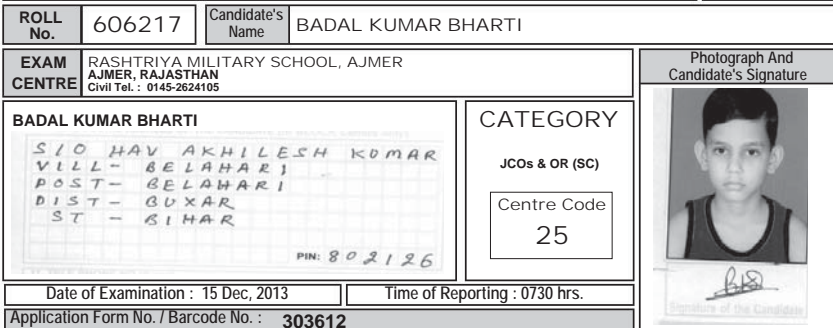 ROLL No. 606217 Candidate's Name BADAL KUMAR BHARTI
EXAM CENTRE RASHTRIYA MILITARY SCHOOL, AJMER
AJMER, RAJASTHAN
Civil Tel. : 0145-2624105
Photograph And
Candidate's Signature
BADAL KUMAR BHARTI
S/O HAV AKHILESH KUMAR
VILL- BELAHARI
POST- BELAHARI
DIST- BUXAR
ST - BIHAR
PIN: 802126
CATEGORY
JCOs & OR (SC)
Centre Code
25
Signature of the Candidate
Date of Examination : 15 Dec, 2013 Time of Reporting : 0730 hrs.
Application Form No. / Barcode No. : 303612